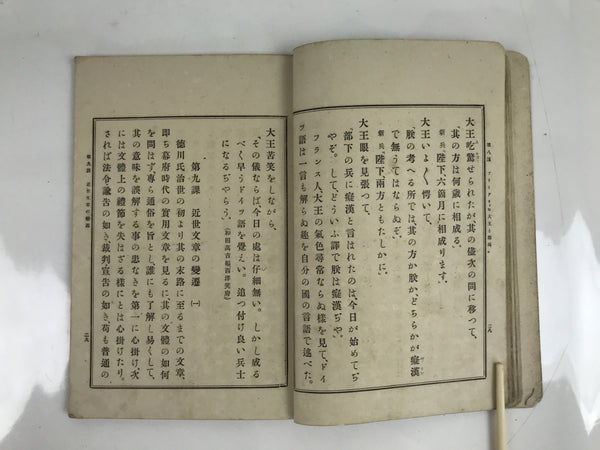 大王吃驚せられたが、其の儘次の間に移つて、
「其の方は何歲に相成る。」
新兵「陛下、六箇月に相成ります。」
大王いよ〳〵愕いて、
「朕の考へる所では、其の方か朕か、どちらかが癡漢
で無うてはならぬぞ。」
新兵「陛下、兩方ともたしかに。」
大王眼を見張つて、
「部下の兵に癡漢と言はれたのは、今日が始めてぢ
やぞ。して、どういふ譯で朕は癡漢ぢや。」
フランス人、大王の氣色尋常ならぬ樣を見て、ドイ
ツ語は一言も解らぬ趣を自分の國の言語で述べた。
二八
大王苦笑をしながら、
「その儀ならば、今日の處は仔細無い。しかし成る
べく早うドイツ語を覺えい。追つ付け良い兵士
になるぢやらう。」
(和田萬吉編西洋笑府)
第九課 近世文章の變遷 (一)
德川氏治世の初より其の末路に至るまでの文章、
卽ち幕府時代の實用文章を見るに、其の文體の如何
を問はず、專ら通俗を旨とし、誰にも了解し易くして、
其の意味を誤解する事の患なきを第一に心掛け、次
には文體上の禮節を失はざる樣にとは心掛けたり。
されば法令諭告の如き、裁判宣告の如き、苟も普通の
第九課 近世文章の變遷
二九